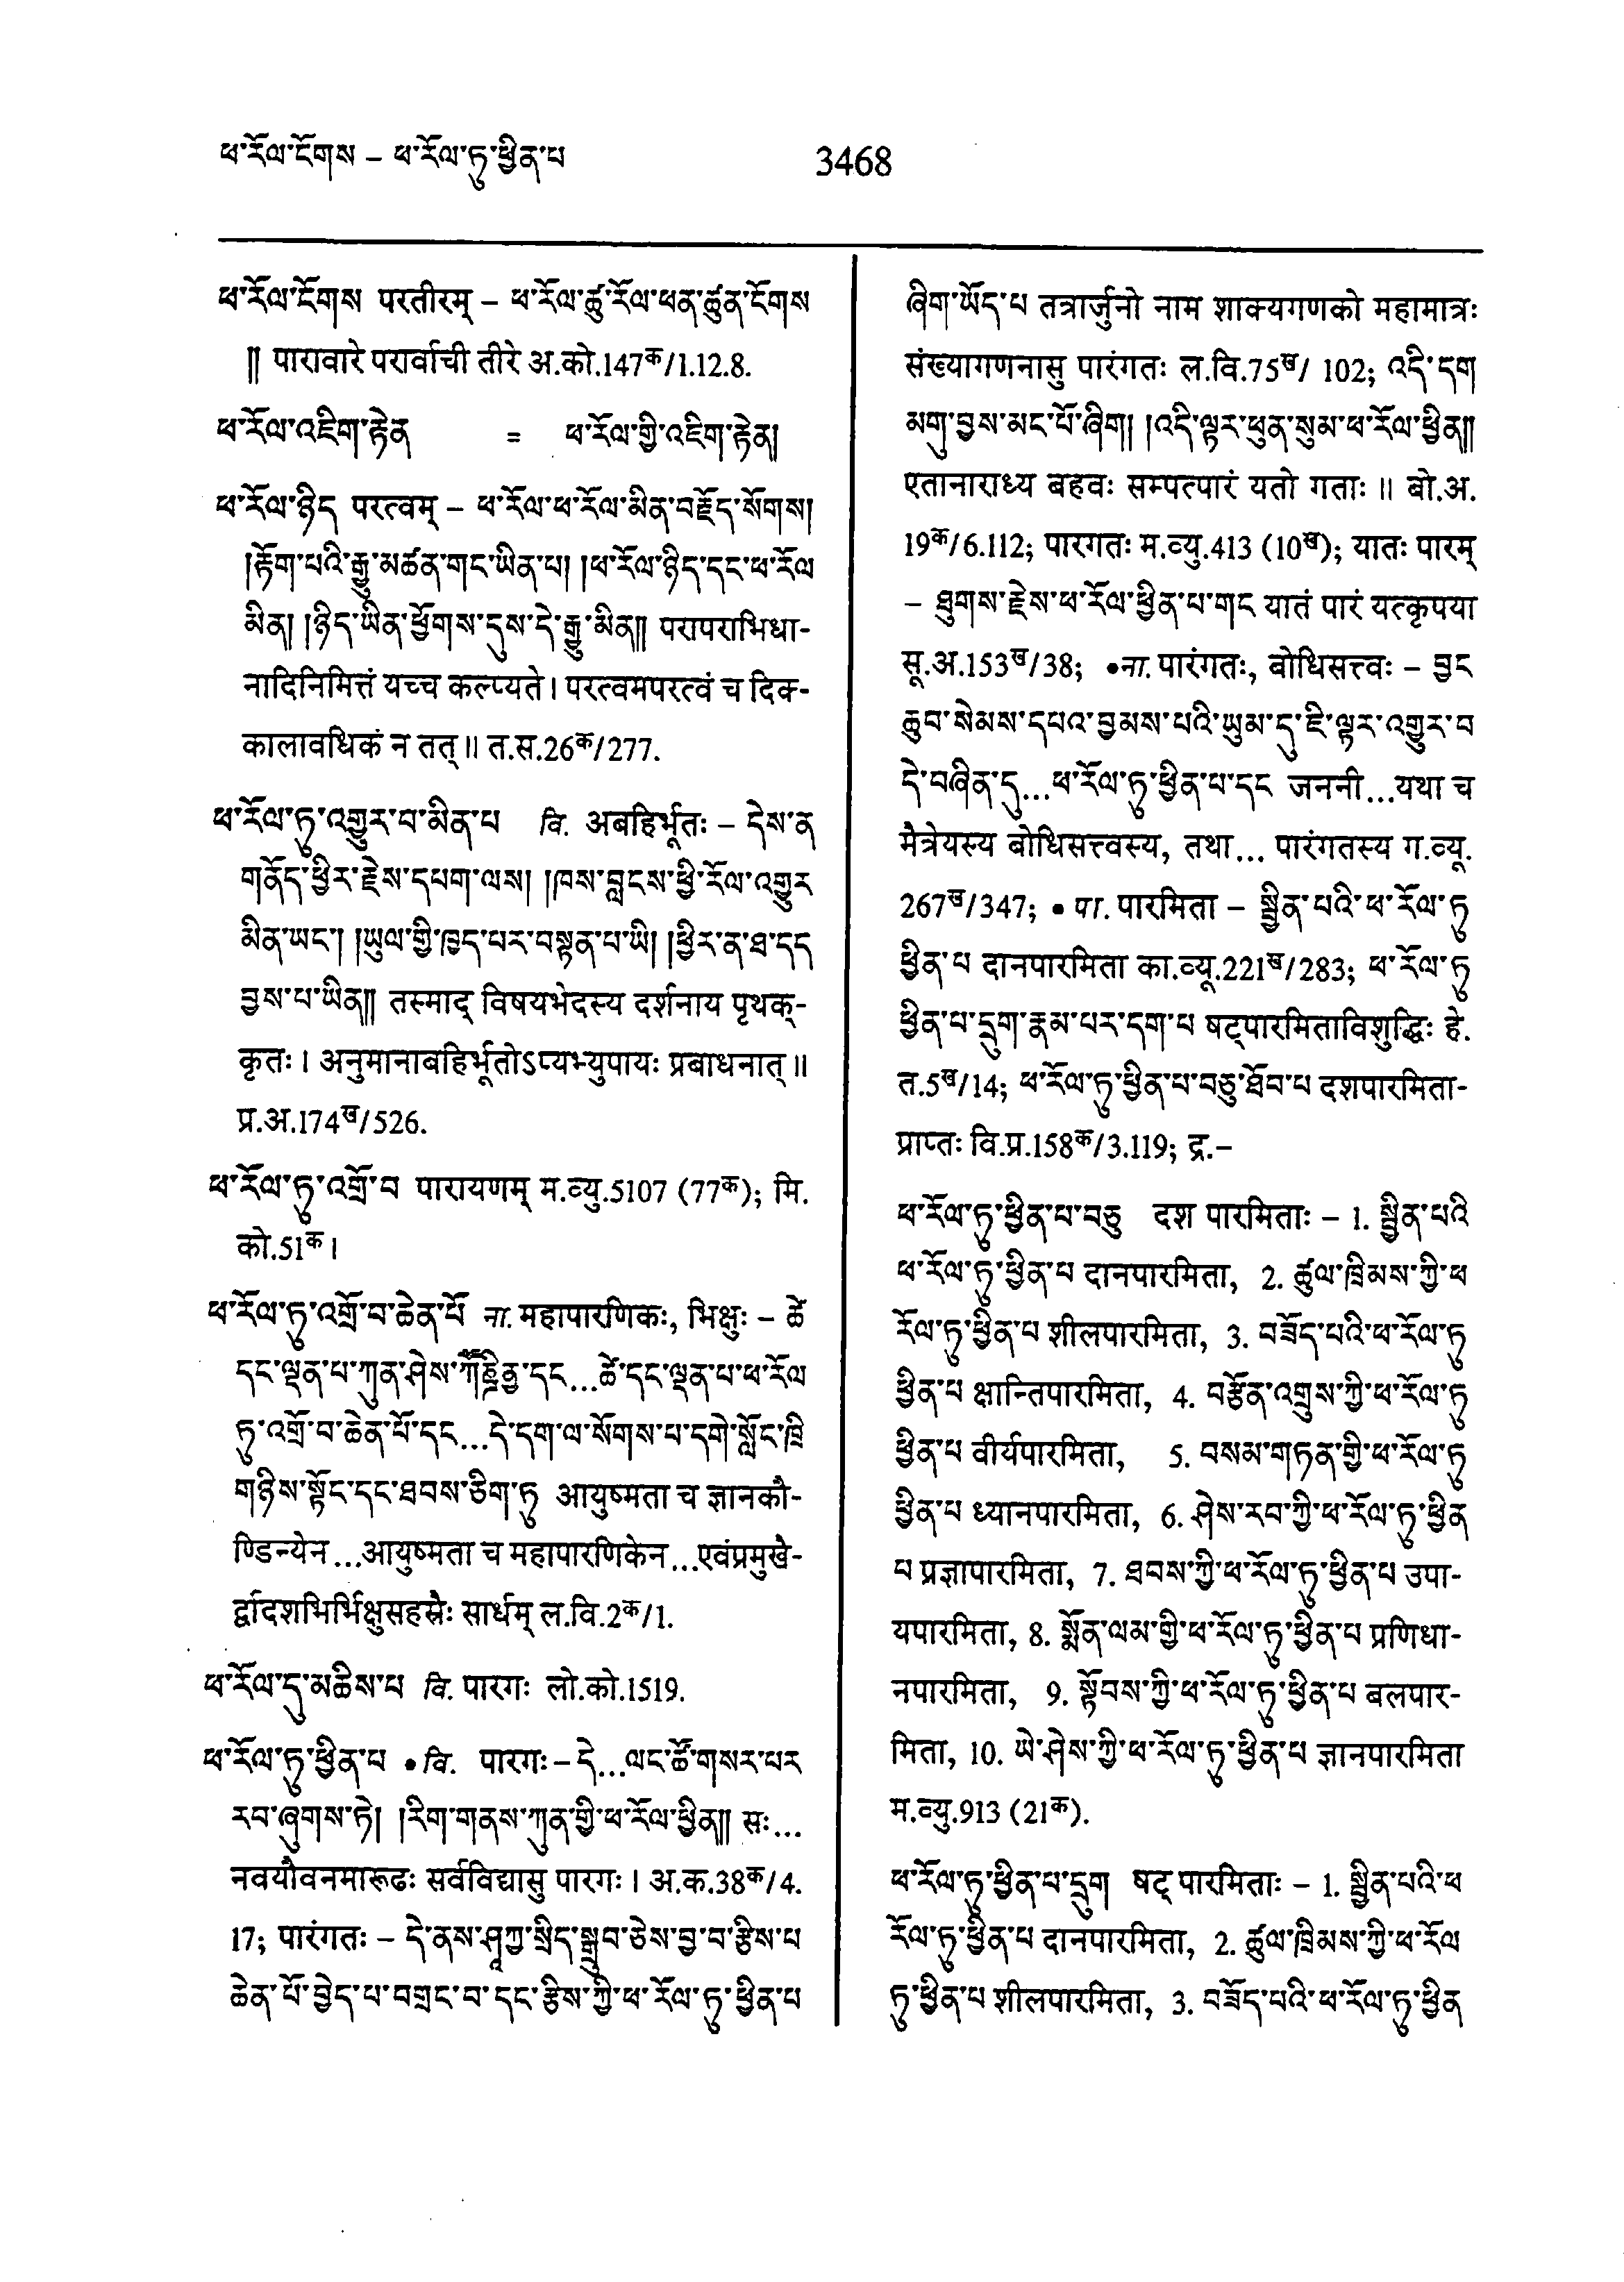 ཕ་རོལ་ངོགས – ཕ་རོལ་ཏུ་ཕྱིན་པ
3468
ཕ་རོལ་ངོགས परतीरम् – ཕ་རོལ་ཚུ་རོལ་ཕན་ཚུན་ངོགས
॥ पारावारे परार्वाची तीरे अ.को.147क/1.12.8.
ཕ་རོལ་འཇིག་རྟེན = ཕ་རོལ་གྱི་འཇིག་རྟེན།
ཕ་རོལ་ཉིད परत्वम् – ཕ་རོལ་ཕ་རོལ་མིན་བརྗོད་སོགས།
།རྟོག་པའི་རྒྱུ་མཚན་གང་ཡིན་པ། །ཕ་རོལ་ཉིད་དང་ཕ་རོལ
མིན། །ཉིད་ཡིན་ཕྱོགས་དུས་དེ་རྒྱུ་མིན།། परापराभिधा-
नादिनिमित्तं यच्च कल्प्यते। परत्वमपरत्वं च दिक-
कालावधिकं न तत्॥ त.स.26क/277.
ཕ་རོལ་ཏུ་འགྱུར་བ་མིན་པ वि. अबहिर्भूतः – དེས་ན
གནོད་ཕྱིར་རྗེས་དཔག་ལས། །ཁས་བླངས་ཕྱི་རོལ་འགྱུར
མིན་ཡང་། །ཡུལ་གྱི་ཁྱད་པར་བསྟན་པ་ཡི། །ཕྱིར་ན་ཐ་དད
བྱས་པ་ཡིན།། तस्माद् विषयभेदस्य दर्शनाय पृथक्-
कृतः। अनुमानाबहिर्भूतोऽप्यभ्युपायः प्रबाधनात्॥
प्र.अ.174ख/526.
ཕ་རོལ་ཏུ་འགྲོ་བ पारायणम् म.व्यु.5107 (77क); मि.
को.51क।
ཕ་རོལ་ཏུ་འགྲོ་བ་ཆེན་པོ ना. महापारणिकः, भिक्षुः – ཚེ
དང་ལྡན་པ་ཀུན་ཤེས་ཀཽཎྜིནྱ་དང...ཚེ་དང་ལྡན་པ་ཕ་རོལ
ཏུ་འགྲོ་བ་ཆེན་པོ་དང...དེ་དག་ལ་སོགས་པ་དགེ་སློང་ཁྲི
གཉིས་སྟོང་དང་ཐབས་ཅིག་ཏུ आयुष्मता च ज्ञानकौ-
ण्डिन्येन...आयुष्मता च महापारणिकेन...एवंप्रमुखै-
र्द्वादशभिर्भिक्षुसहस्रैः सार्धम् ल.वि.2क/1.
ཕ་རོལ་དུ་མཆིས་པ वि. पारगः लो.को.1519.
ཕ་རོལ་ཏུ་ཕྱིན་པ •वि. पारगः – དེ...ལང་ཚོ་གསར་པར
རབ་ཞུགས་ཏེ། །རིག་གནས་ཀུན་གྱི་ཕ་རོལ་ཕྱིན།། सः...
नवयौवनमारूढः सर्वविद्यासु पारगः। अ.क.38क/4.
17; पारंगतः – དེ་ནས་ཤཱཀྱ་སྲིད་སྒྲུབ་ཅེས་བྱ་བ་རྩིས་པ
ཆེན་པོ་བྱེད་པ་བགྲང་བ་དང་རྩིས་ཀྱི་ཕ་རོལ་ཏུ་ཕྱིན་པ
ཞིག་ཡོད་པ तत्रार्जुनो नाम शाक्यगणको महामात्रः
संख्यागणनासु पारंगतः ल.वि.75ख/ 102; འདི་དག
མགུ་བྱས་མང་པོ་ཞིག། །འདི་ལྟར་ཕུན་སུམ་ཕ་རོལ་ཕྱིན།།
एतानाराध्य बहवः सम्पत्पारं यतो गताः॥ बो.अ.
19क/6.112; पारगतः म.व्यु.413 (10ख); यातः पारम्
– ཐུགས་རྗེས་ཕ་རོལ་ཕྱིན་པ་གང यातं पारं यत्कृपया
सू.अ.153ख/38; •ना. पारंगतः, बोधिसत्त्वः – བྱང
ཆུབ་སེམས་དཔའ་བྱམས་པའི་ཡུམ་དུ་ཇི་ལྟར་འགྱུར་བ
དེ་བཞིན་དུ...ཕ་རོལ་ཏུ་ཕྱིན་པ་དང जननी...यथा च
मैत्रेयस्य बोधिसत्त्वस्य, तथा... पारंगतस्य ग.व्यू.
267ख/347; • पा. पारमिता – སྦྱིན་པའི་ཕ་རོལ་ཏུ
ཕྱིན་པ दानपारमिता का.व्यू.221ख/283; ཕ་རོལ་ཏུ
ཕྱིན་པ་དྲུག་རྣམ་པར་དག་པ षट्पारमिताविशुद्धिः हे.
त.5ख/14; ཕ་རོལ་ཏུ་ཕྱིན་པ་བཅུ་ཐོབ་པ दशपारमिता-
प्राप्तः वि.प्र.158क/3.119; द्र.–
ཕ་རོལ་ཏུ་ཕྱིན་པ་བཅུ दश पारमिताः – 1. སྦྱིན་པའི
ཕ་རོལ་ཏུ་ཕྱིན་པ दानपारमिता, 2. ཚུལ་ཁྲིམས་ཀྱི་ཕ
རོལ་ཏུ་ཕྱིན་པ शीलपारमिता, 3. བཟོད་པའི་ཕ་རོལ་ཏུ
ཕྱིན་པ क्षान्तिपारमिता, 4. བརྩོན་འགྲུས་ཀྱི་ཕ་རོལ་ཏུ
ཕྱིན་པ वीर्यपारमिता, 5. བསམ་གཏན་གྱི་ཕ་རོལ་ཏུ
ཕྱིན་པ ध्यानपारमिता, 6. ཤེས་རབ་ཀྱི་ཕ་རོལ་ཏུ་ཕྱིན
པ प्रज्ञापारमिता, 7. ཐབས་ཀྱི་ཕ་རོལ་ཏུ་ཕྱིན་པ उपा-
यपारमिता, 8. སྨོན་ལམ་གྱི་ཕ་རོལ་ཏུ་ཕྱིན་པ प्रणिधा-
नपारमिता, 9. སྟོབས་ཀྱི་ཕ་རོལ་ཏུ་ཕྱིན་པ बलपार-
मिता, 10. ཡེ་ཤེས་ཀྱི་ཕ་རོལ་ཏུ་ཕྱིན་པ ज्ञानपारमिता
म.व्यु.913 (21क).
ཕ་རོལ་ཏུ་ཕྱིན་པ་དྲུག षट् पारमिताः – 1. སྦྱིན་པའི་ཕ
རོལ་ཏུ་ཕྱིན་པ दानपारमिता, 2. ཚུལ་ཁྲིམས་ཀྱི་ཕ་རོལ
ཏུ་ཕྱིན་པ शीलपारमिता, 3. བཟོད་པའི་ཕ་རོལ་ཏུ་ཕྱིན